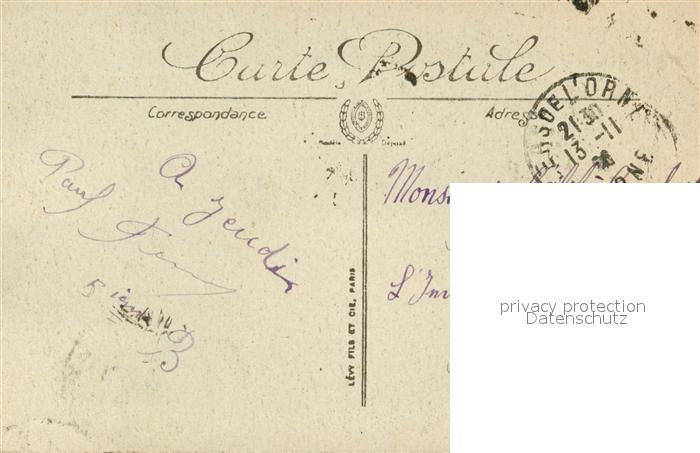 Carte Postale
Correspondance
Adresse
Modèle Déposé
A Jeudi
Paul
5 ième B
LÉVY FILS ET CIE, PARIS
DE L'ORNE
21 30
13-11
26
privacy protection
Datenschutz